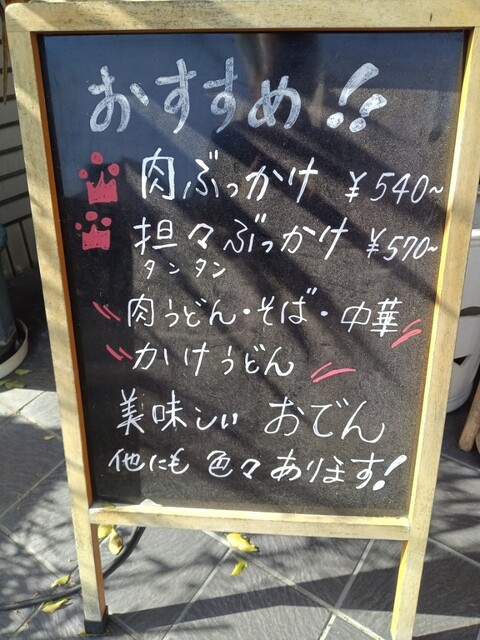 おすすめ!!
肉ぶっかけ ¥540~
担々ぶっかけ ¥570~
タンタン
肉うどん・そば・中華
かけうどん
美味しい おでん
他にも 色々あります!